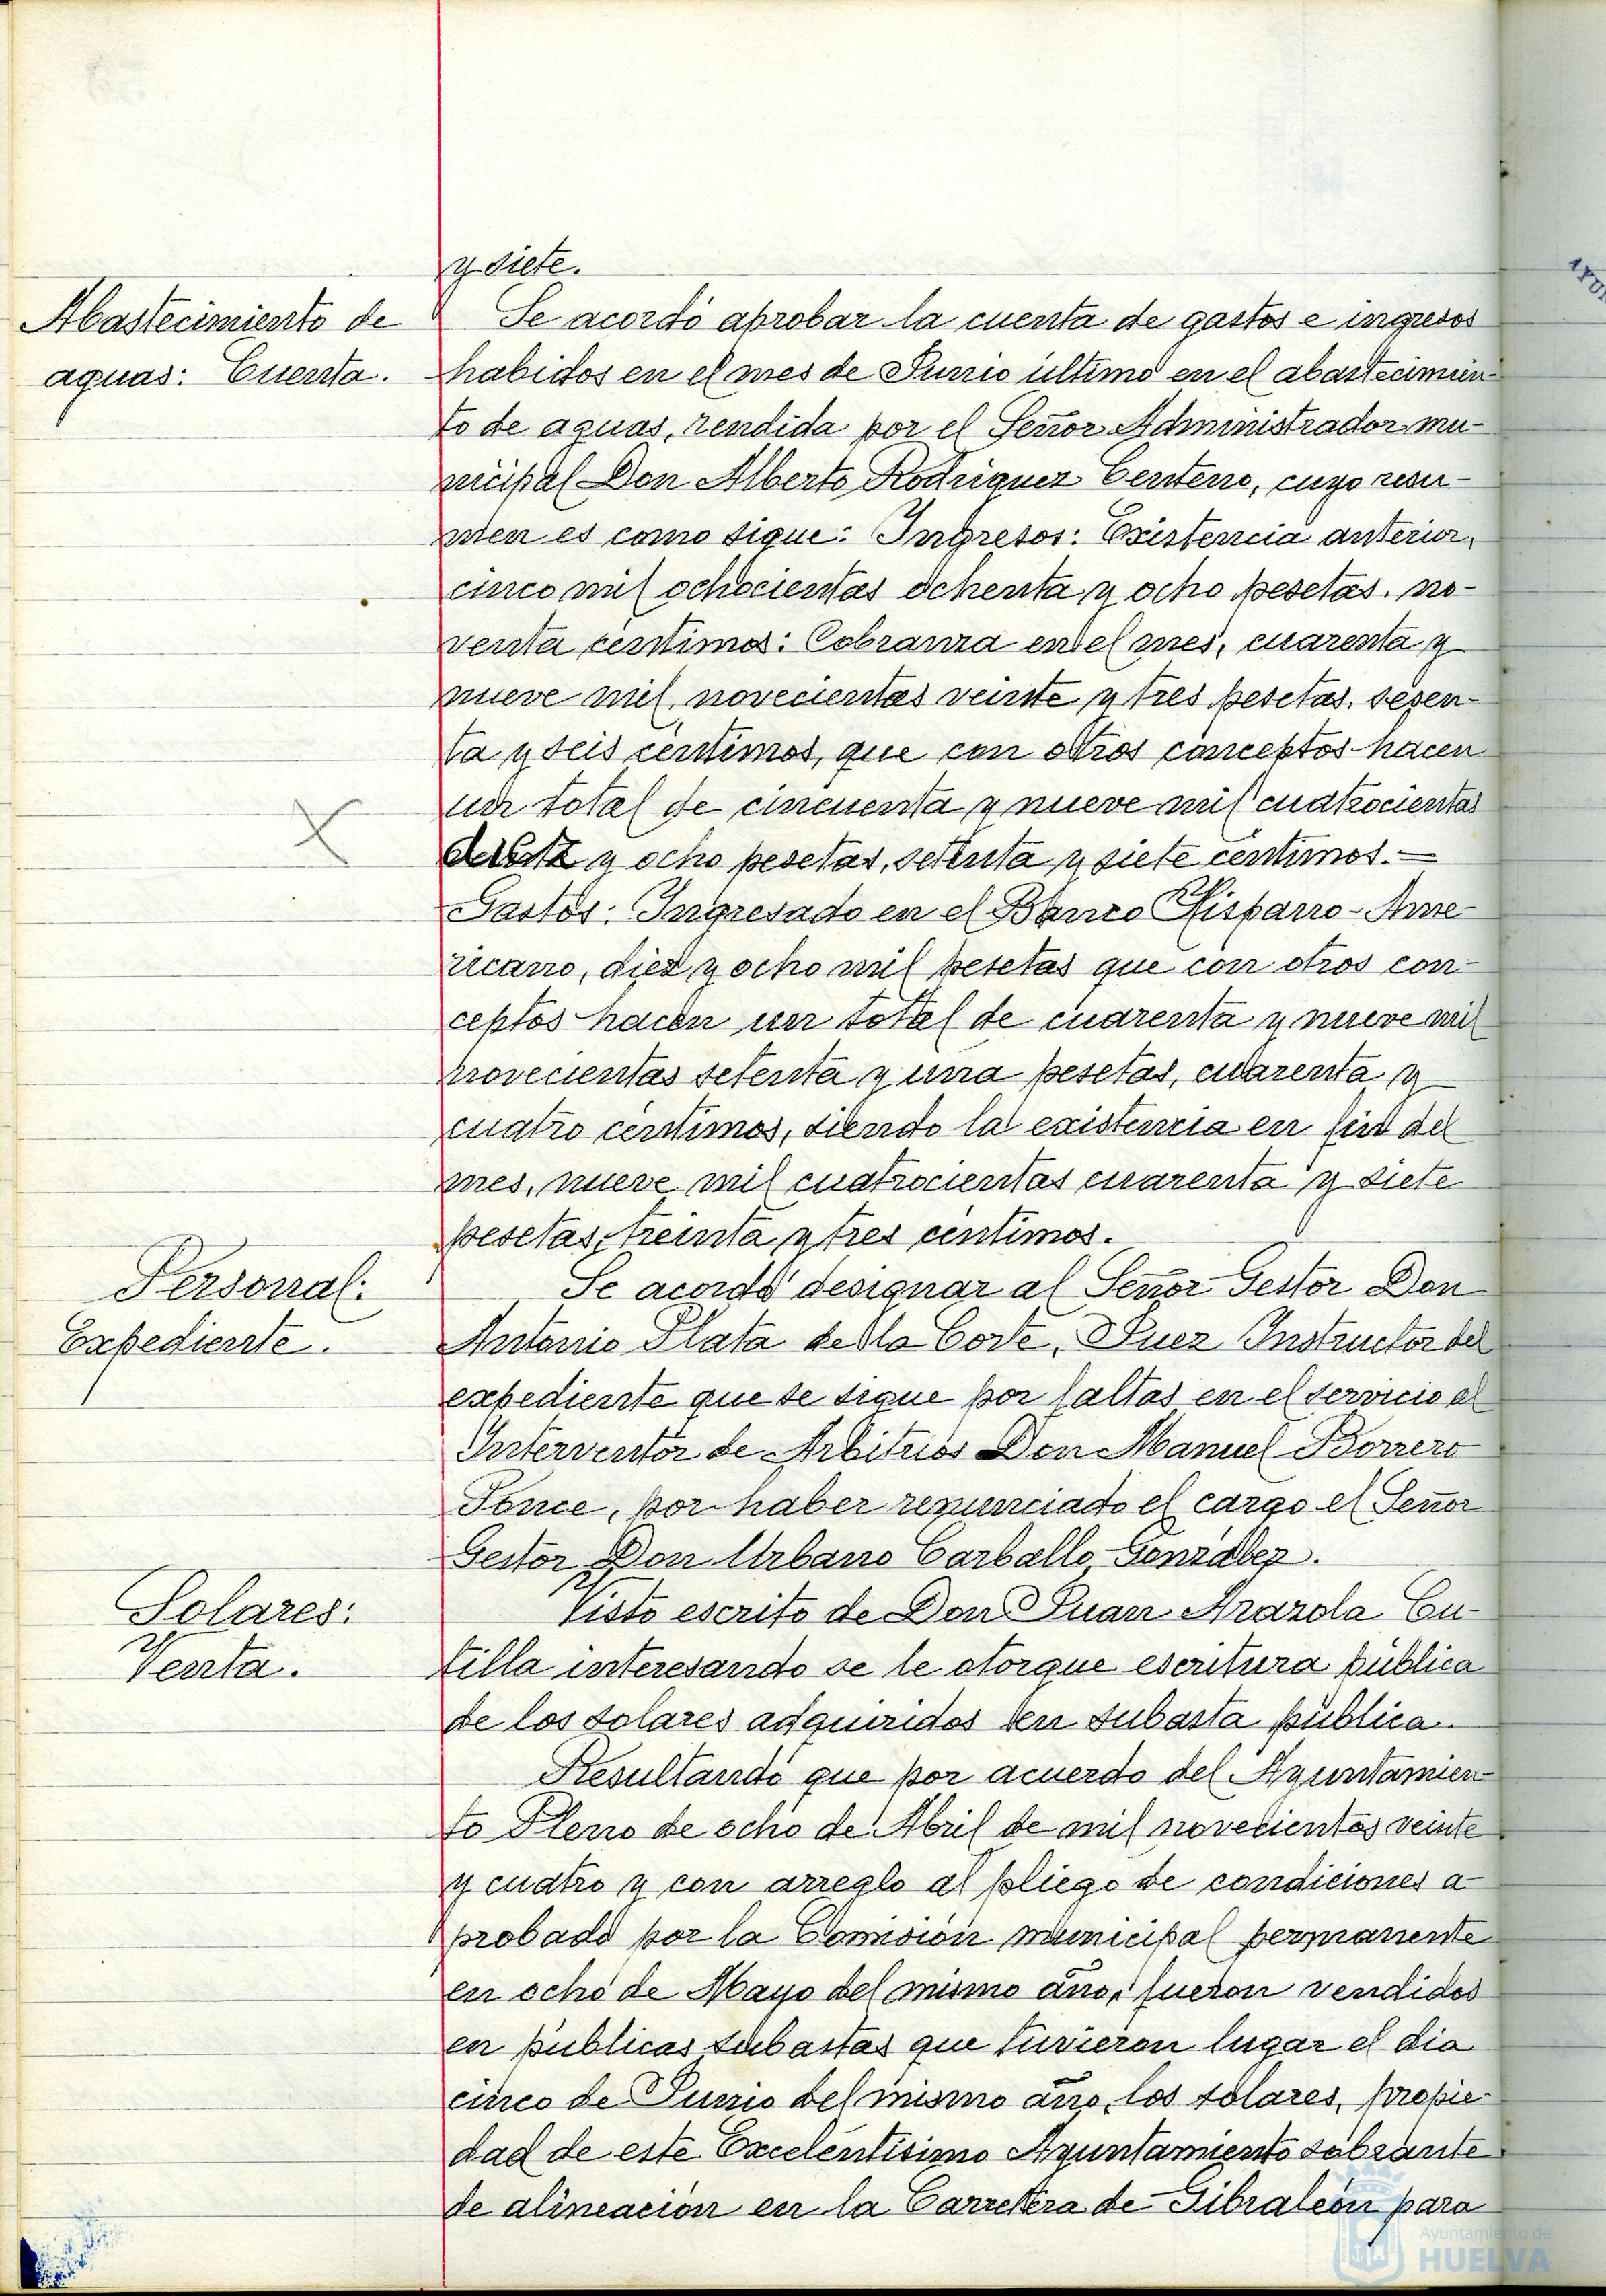 y siete.
Abastecimiento de
aguas: Cuenta.
Se acordó aprobar la cuenta de gastos e ingresos
habidos en el mes de Junio último en el abastecimien-
to de aguas, rendida por el Señor Administrador mu-
nicipal Don Alberto Rodriguez Centeno, cuyo resu-
men es como sigue: Ingresos: Existencia anterior,
cinco mil ochocientas ochenta y ocho pesetas, no-
venta centimos: Cobranza en el mes, cuarenta y
nueve mil novecientas veinte y tres pesetas, sesen-
ta y seis centimos, que con otros conceptos hacen
un total de cincuenta y nueve mil cuatrocientas
y ocho pesetas, setenta y siete centimos.—
Gastos: Ingresado en el Banco Hispano-Ame-
ricano, diez y ocho mil pesetas que con otros con-
ceptos hacen un total de cuarenta y nueve mil
novecientas setenta y una pesetas, cuarenta y
cuatro centimos, siendo la existencia en fin del
mes, nueve mil cuatrocientas cuarenta y siete
pesetas, treinta y tres centimos.
Personal:
Expediente.
Se acordó designar al Señor Gestor Don
Antonio Plata de la Corte, Juez Instructor del
expediente que se sigue por faltas en el servicio al
Interventor de Arbitrios Don Manuel Borrero
Ponce, por haber renunciado el cargo el Señor
Gestor Don Urbano Carballo Gonzalez.
Solares:
Venta.
Visto escrito de Don Juan Arazola Cu-
tilla interesando se le otorgue escritura pública
de los solares adquiridos en subasta pública.
Resultando que por acuerdo del Ayuntamien-
to Pleno de ocho de Abril de mil novecientos veinte
y cuatro y con arreglo al pliego de condiciones a-
probado por la Comisión municipal permanente
en ocho de Mayo del mismo año, fueron vendidos
en públicas subastas que tuvieron lugar el dia
cinco de Junio del mismo año, los solares, propie-
dad de este Excelentisimo Ayuntamiento sobrante
de alineación en la Carretera de Gibraleón para
Ayuntamiento de
HUELVA